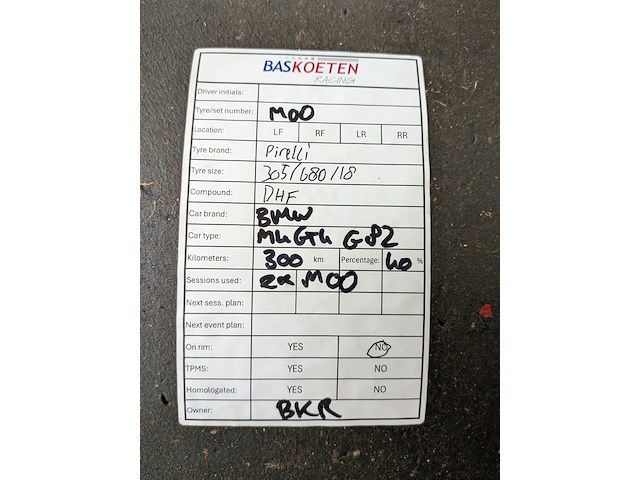 BAS KOETEN
RACING
Driver initials:
Tyre/set number: M00
Location: LF RF LR RR
Tyre brand: Pirelli
Tyre size: 305/680/18
Compound: DHF
Car brand: BMW
Car type: M4 GT4 G82
Kilometers: 300 km Percentage: 40 %
Sessions used: 2x M00
Next sess. plan:
Next event plan:
On rim: YES NO
TPMS: YES NO
Homologated: YES NO
Owner: BKR